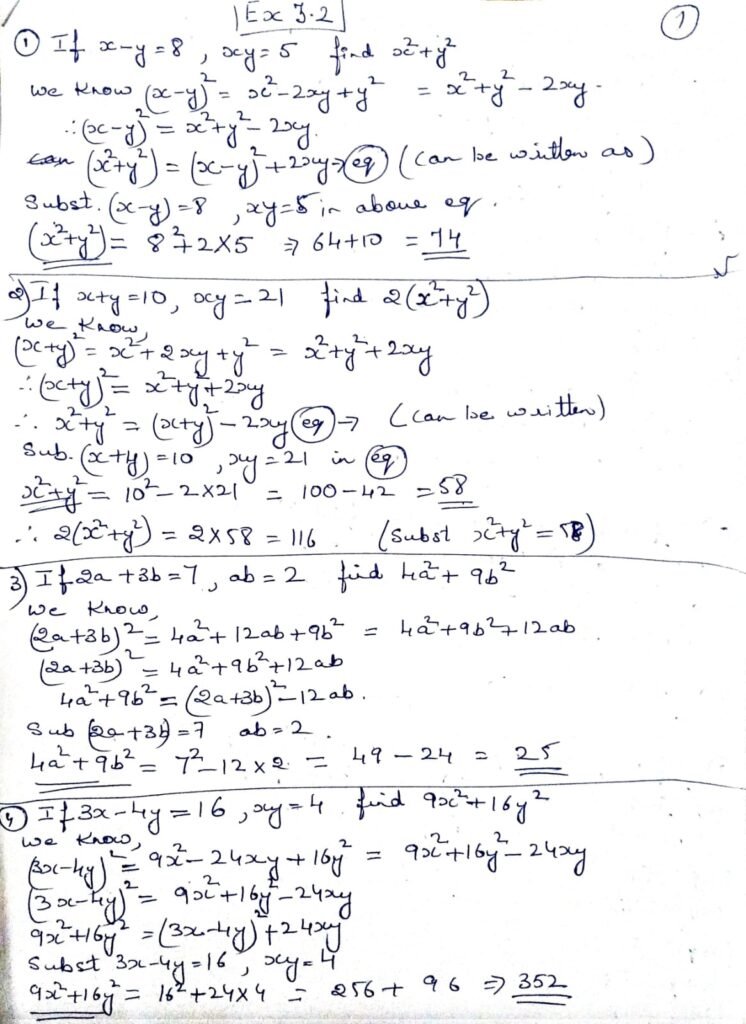 Ex 3.2
1
① If x-y=8 , xy=5 find x²+y²
we know (x-y)² = x²-2xy+y² = x²+y²-2xy.
∴(x-y)² = x²+y²-2xy.
(x²+y²) = (x-y)²+2xy→eq (can be written as)
Subst. (x-y)=8 , xy=5 in above eq.
(x²+y²) = 8²+2×5 ⇒ 64+10 = 74
2) If x+y=10, xy=21 find 2(x²+y²)
we know,
(x+y)² = x²+2xy+y² = x²+y²+2xy
∴(x+y)² = x²+y²+2xy
∴ x²+y² = (x+y)²-2xy eq → (can be written)
Sub. (x+y)=10 , xy=21 in eq
x²+y² = 10²-2×21 = 100-42 = 58
∴ 2(x²+y²) = 2×58 = 116 (Subst x²+y²=58)
3) If 2a+3b=7, ab=2 find 4a²+9b²
we know,
(2a+3b)² = 4a²+12ab+9b² = 4a²+9b²+12ab
(2a+3b)² = 4a²+9b²+12ab
4a²+9b² = (2a+3b)²-12ab.
Sub (2a+3b)=7 ab=2.
4a²+9b² = 7²-12×2 = 49-24 = 25
④ If 3x-4y=16 , xy=4 find 9x²+16y²
we know,
(3x-4y)² = 9x²-24xy+16y² = 9x²+16y²-24xy
(3x-4y)² = 9x²+16y²-24xy
9x²+16y² = (3x-4y)²+24xy
Subst 3x-4y=16, xy=4
9x²+16y² = 16²+24×4 = 256+96 ⇒ 352